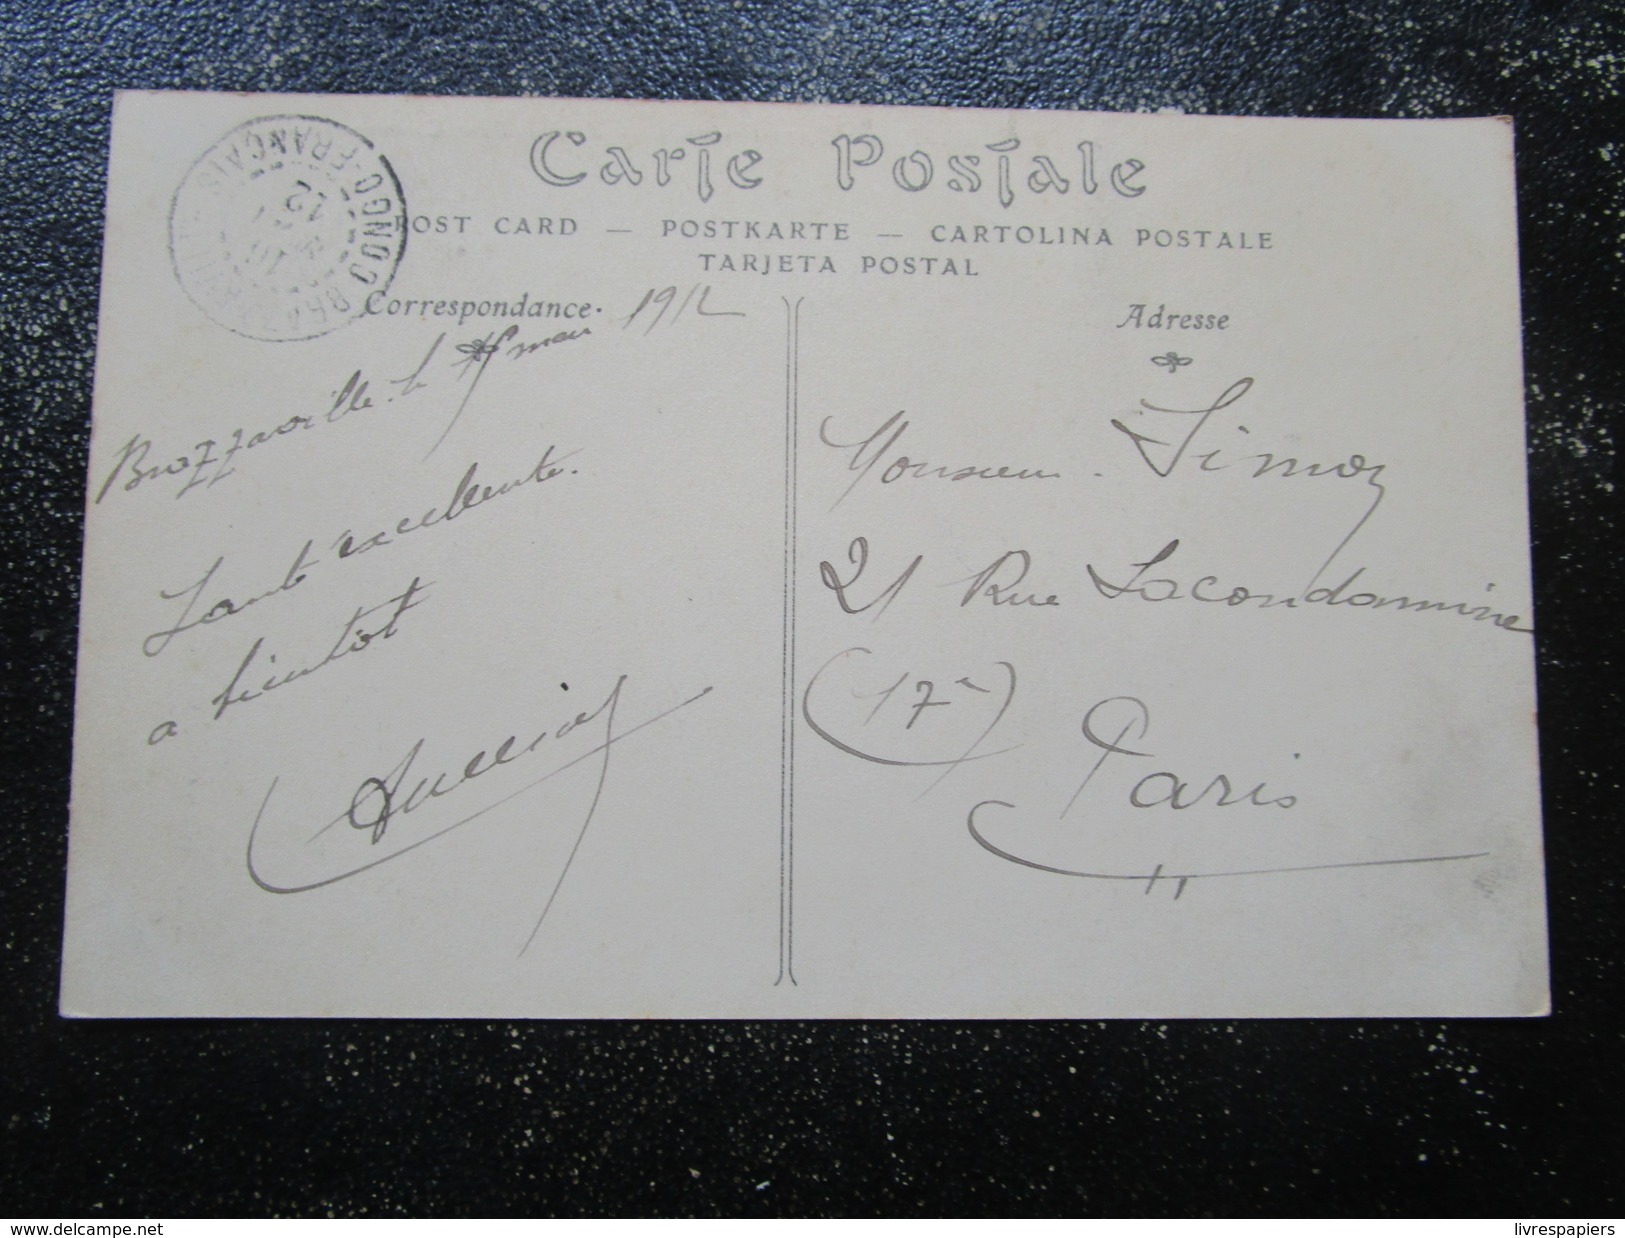 Carte Postale
POST CARD — POSTKARTE — CARTOLINA POSTALE
TARJETA POSTAL
CONGO FRANÇAIS
12
Correspondance.
Brazzaville. le mai 1912
Santé excellente.
a bientot
Adresse
Monsieur. Simon
21 Rue Lacondamine
(17e)
Paris
www.delcampe.net
livrespapiers